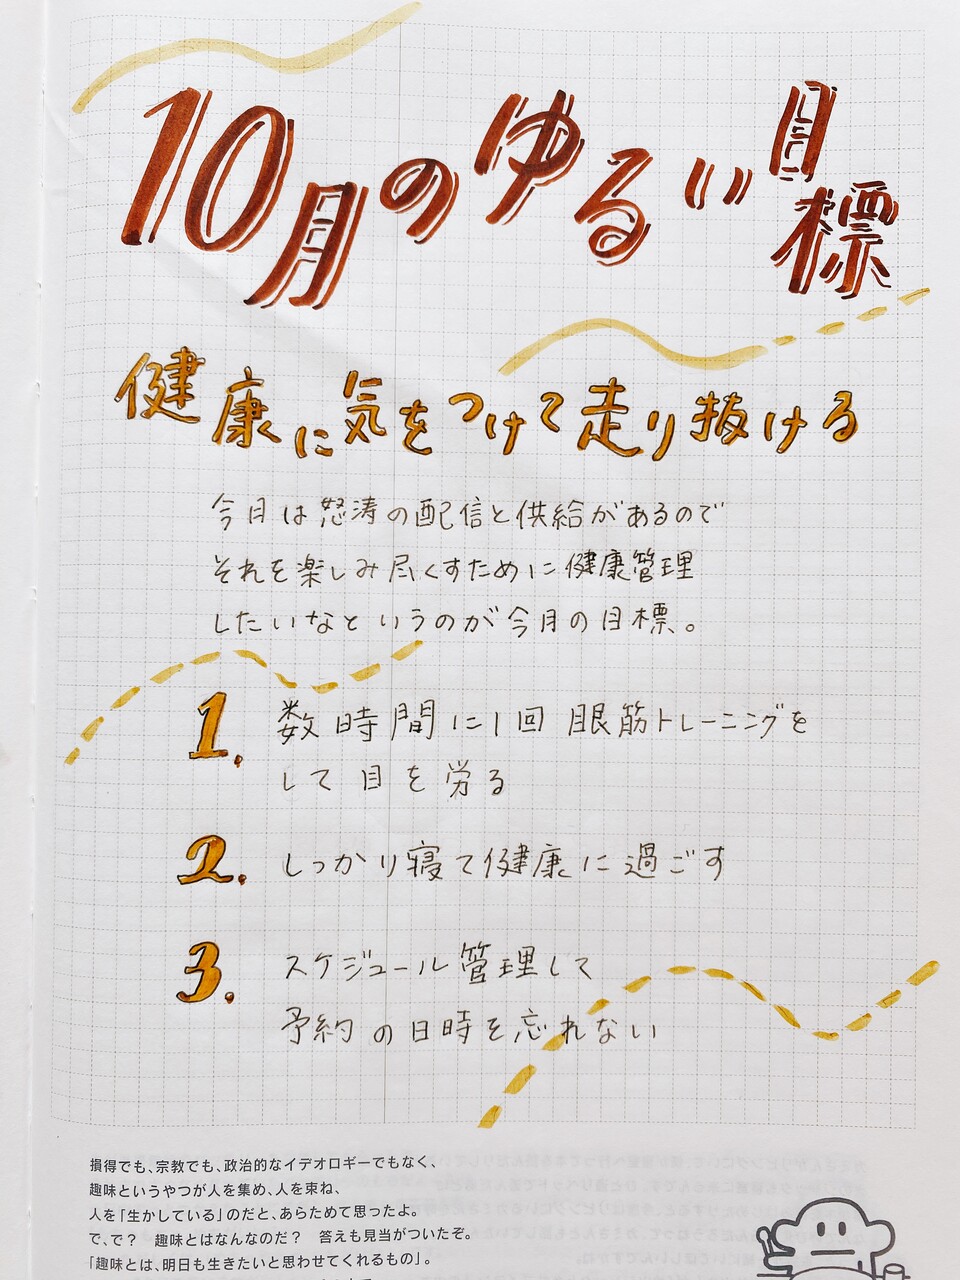 10月のゆるい目標
健康に気をつけて走り抜ける
今月は怒涛の配信と供給があるので
それを楽しみ尽くすために健康管理
したいなというのが今月の目標。
1. 数時間に1回 眼筋トレーニングを
して目を労る
2. しっかり寝て健康に過ごす
3. スケジュール管理して
予約の日時を忘れない
損得でも、宗教でも、政治的なイデオロギーでもなく、
趣味というやつが人を集め、人を束ね、
人を「生かしている」のだと、あらためて思ったよ。
で、で？　趣味とはなんなのだ？　答えも見当がついたぞ。
「趣味とは、明日も生きたいと思わせてくれるもの」。